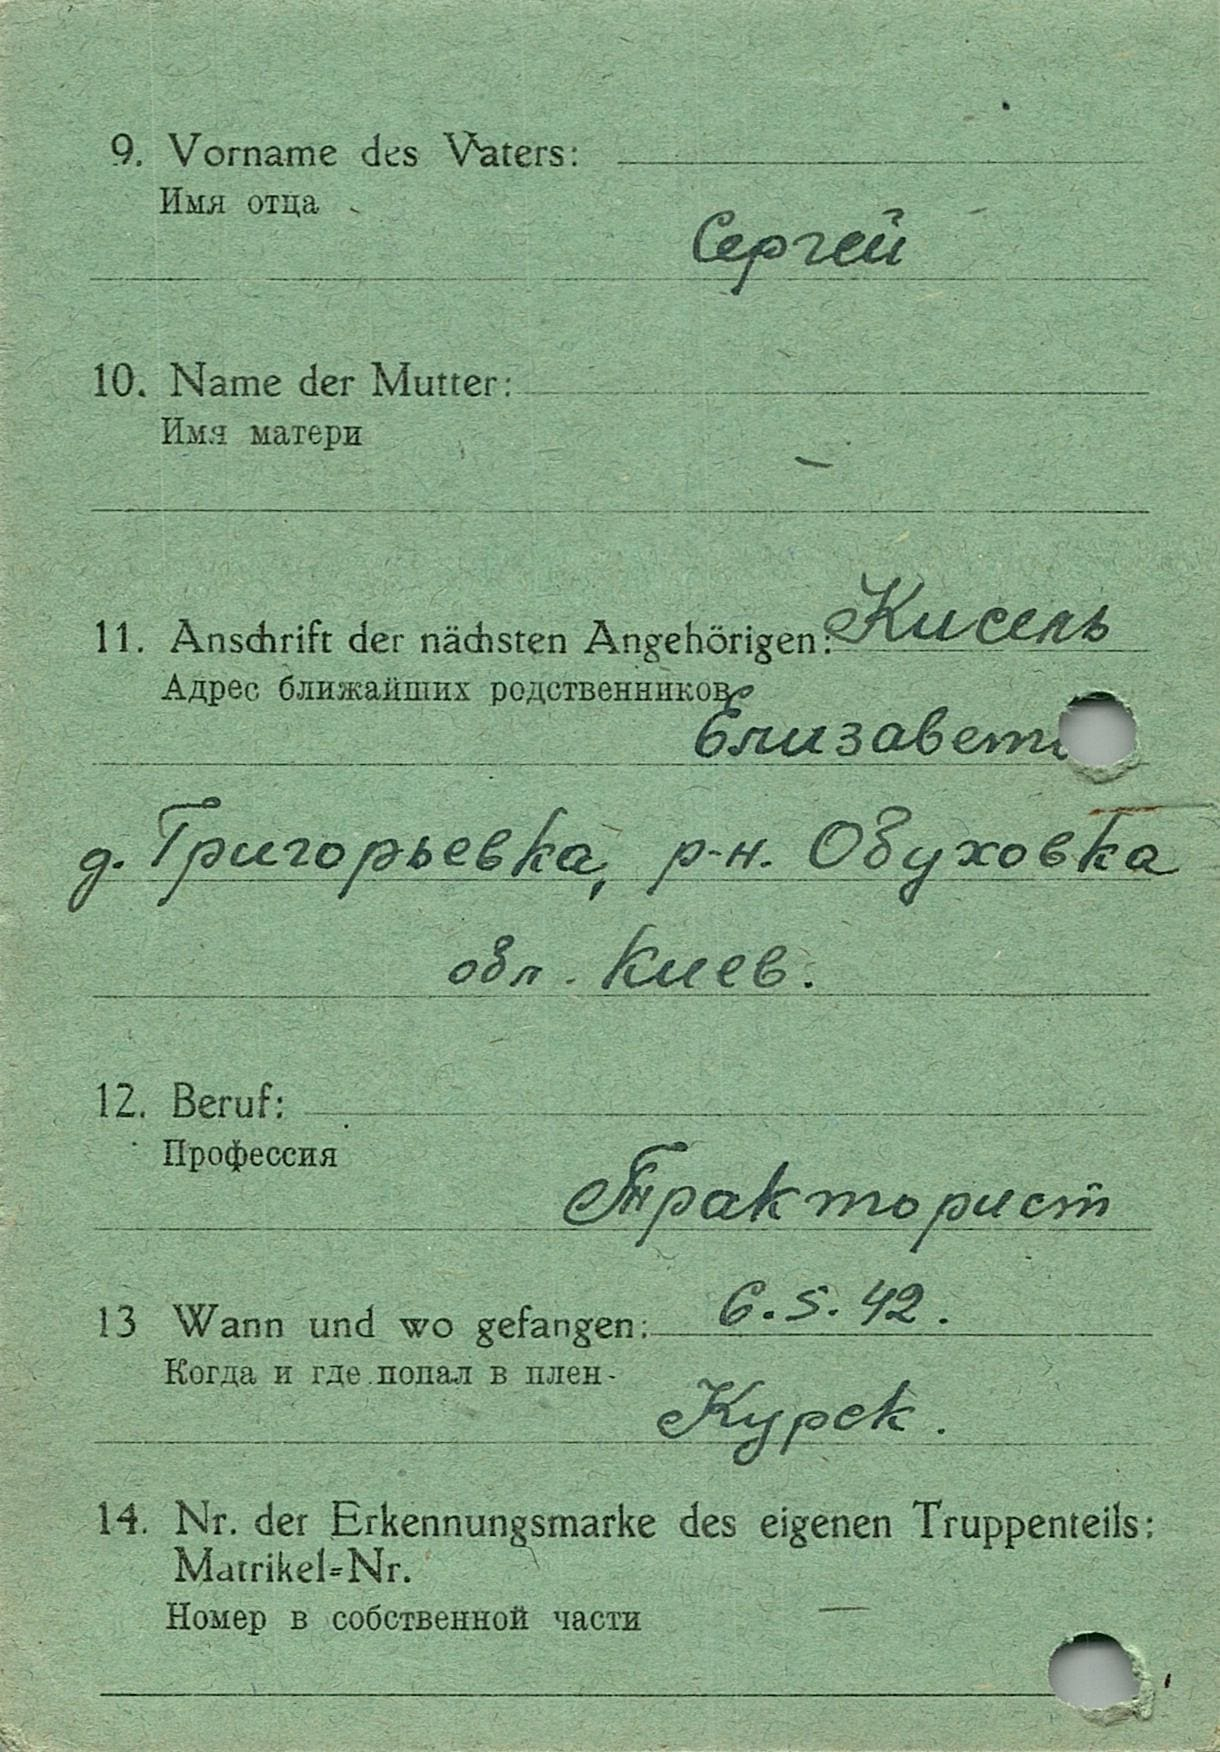 9. Vorname des Vaters:
Имя отца
Сергей
10. Name der Mutter:
Имя матери
–
11. Anschrift der nächsten Angehörigen: Кисель
Адрес ближайших родственников
Елизавет
д. Григорьевка, р-н. Обуховка
обл. Киев.
12. Beruf:
Профессия
Тракторист
13 Wann und wo gefangen: 6.5.42.
Когда и где попал в плен
Курск.
14. Nr. der Erkennungsmarke des eigenen Truppenteils:
Matrikel=Nr.
Номер в собственной части —